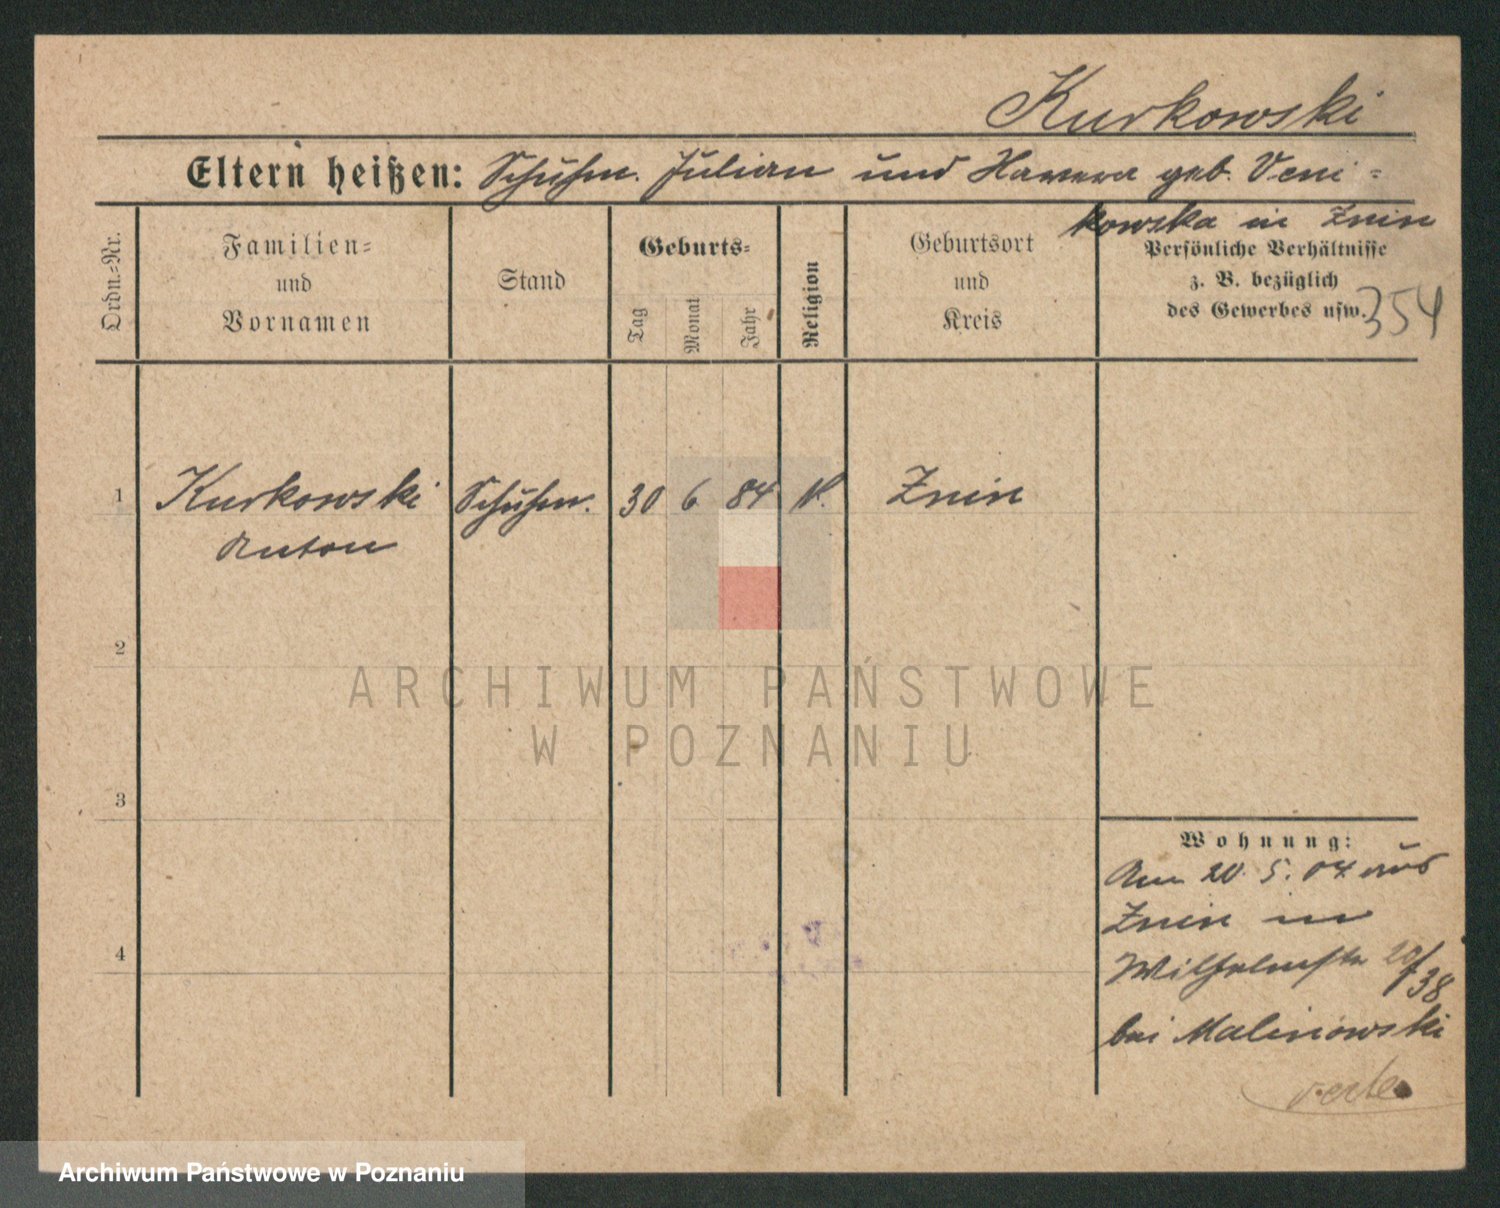 Kurkowski
Eltern heißen: Schuhm. Julian und Hawera geb. Veni-
kowska in Znin
Ordn.=Nr.
Familien=
und
Vornamen
Stand
Geburts=
Tag
Monat
Jahr
Religion
Geburtsort
und
Kreis
Persönliche Verhältnisse
z. B. bezüglich
des Gewerbes usw.
354
1 Kurkowski Schuhm. 30 6 84 k. Znin
Anton
2
3
4
ARCHIWUM PAŃSTWOWE
W POZNANIU
Wohnung:
Am 20. 5. 04 aus
Znin in
Wilhelmstr 20/38
bei Malinowski
verte
Archiwum Państwowe w Poznaniu